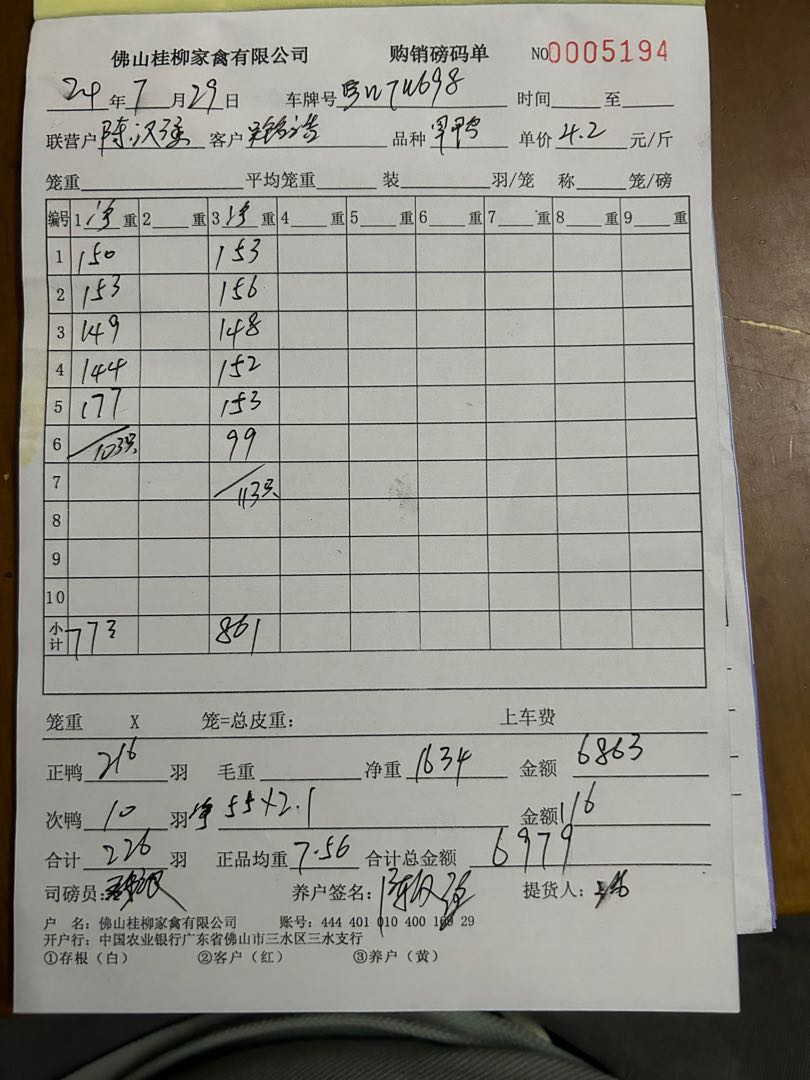 佛山桂柳家禽有限公司 购销磅码单 NO0005194
24年7月29日 车牌号 74698 时间 至
联营户 陈汉强 客户 品种 单价 4.2 元/斤
笼重 平均笼重 装 羽/笼 称 笼/磅
编号 1 净 重 2 重 3 净 重 4 重 5 重 6 重 7 重 8 重 9 重
1 150 153
2 153 156
3 149 148
4 144 152
5 177 153
6 103只 99
7 113只
8
9
10
小计 773 861
笼重 X 笼=总皮重: 上车费
正鸭 216 羽 毛重 净重 1634 金额 6863
次鸭 10 羽 净 55×2.1 金额 116
合计 226 羽 正品均重 7.56 合计总金额 6979
司磅员: 养户签名: 陈汉强 提货人:
户 名: 佛山桂柳家禽有限公司 账号: 444 401 010 400 169 29
开户行: 中国农业银行广东省佛山市三水区三水支行
①存根(白) ②客户(红) ③养户(黄)